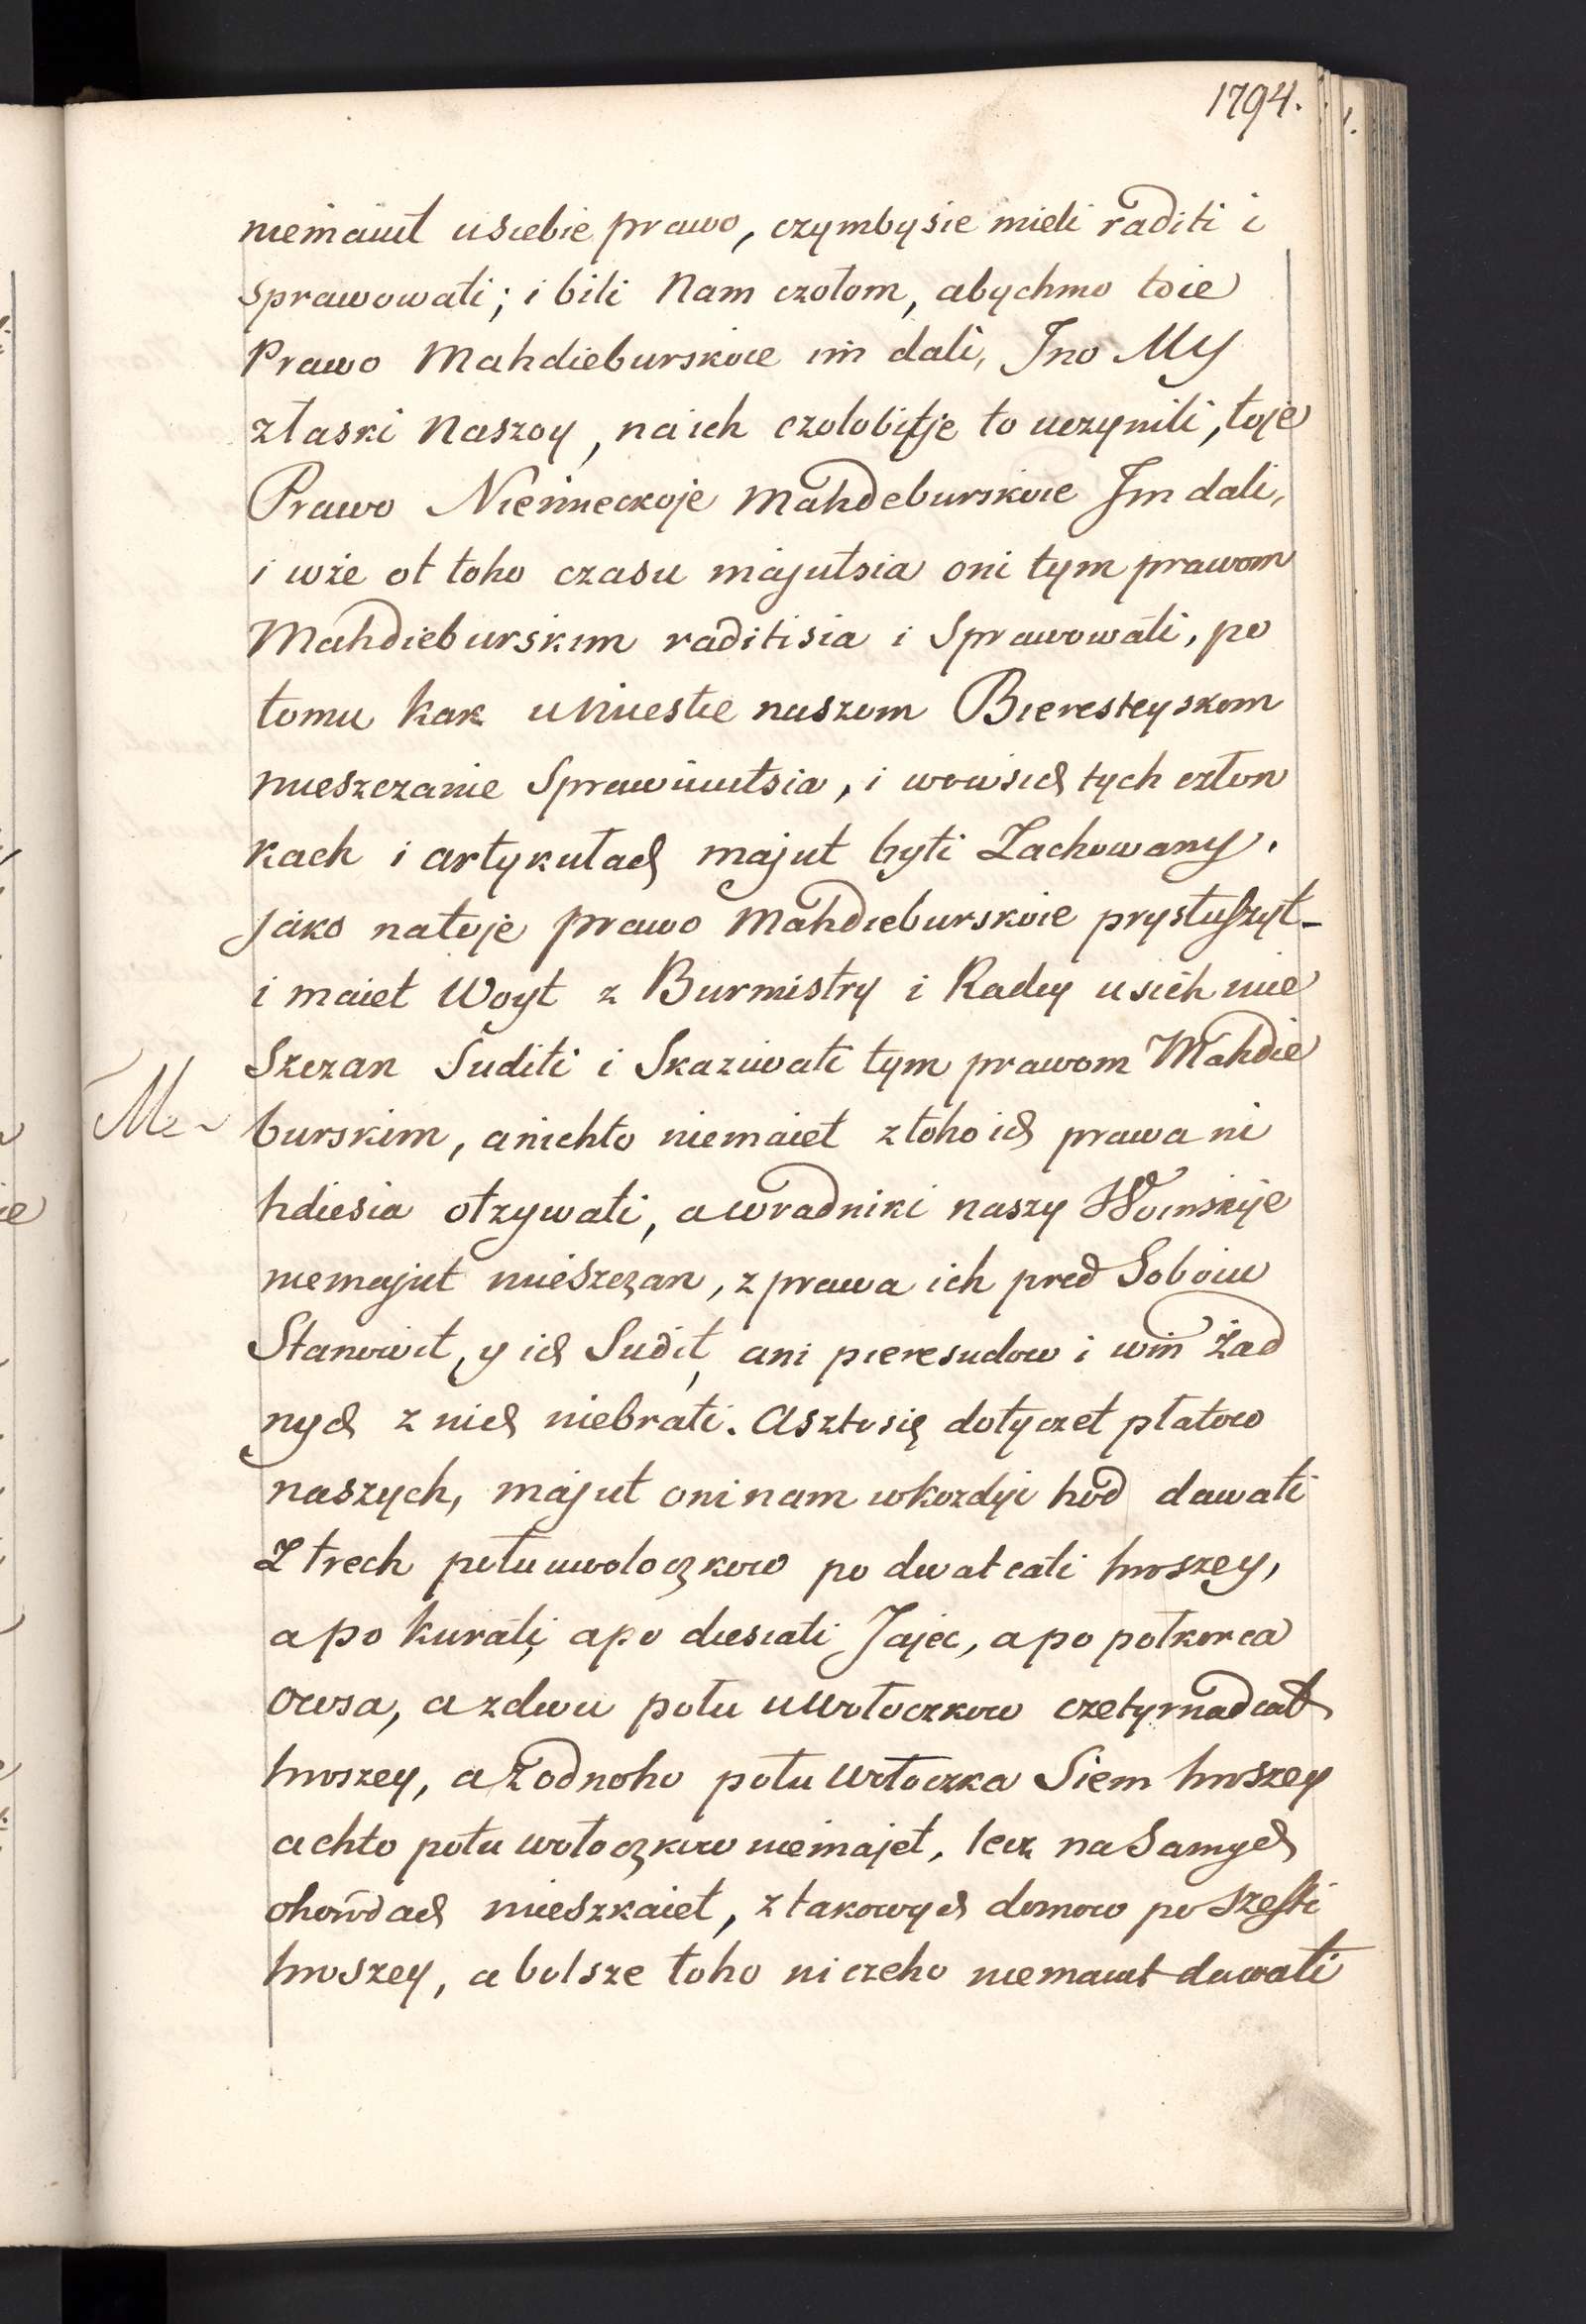 1794.
niemaiut usiebie prawo, czymbysie mieli raditi i
sprawowati; i bili Nam czołom, abychmo toie
Prawo Mahdieburskoie im dali, Jno My
złaski Naszoy, na ich czołobitje to uczynili, toje
Prawo Niemieckoje Mahdeburskoie Jm dali,
i wże ot toho czasu majutsia oni tym prawom
Mahdieburskim raditisia i Sprawowati, po
tomu kak u Miestie naszom Bieresteyskom
mieszczanie Sprawuiutsia, i wowsich tych człon
kach i artykułach majut byti Zachowany.
Jako natoje prawo Mahdieburskoie prysłuszyt_
i maiet Woyt z Burmistry i Radcy usich mie
Szczan Suditi i Skazuwati tym prawom Mahdie
burskim, anichto niemaiet ztoho ich prawa ni
hdiesia otzywati, a wradniki naszy Woinskije
niemajut mieszczan, z prawa ich pred Soboiu
Stanowit, y ich Sudit, ani pieresudow i win Żad
nych z nich niebrati. Asztosię dotyczet płatow
naszych, majut oni nam wkozdyi hod dawati
Z trech połuuwoloczkow po dwatcati hroszey,
a po kurati, apo diesiati Jajec, a po połkorca
owsa, azdwu połu uwołoczkow czetyrnadcat
hroszey, a Zodnoho połu wołoczka Siem hroszey
achto połu wołoczkow niemajet, lecz na Samych
ohorodach mieszkaiet, z takowych domow po szesti
hroszey, a bolsze toho niczeho niemaiut dawati